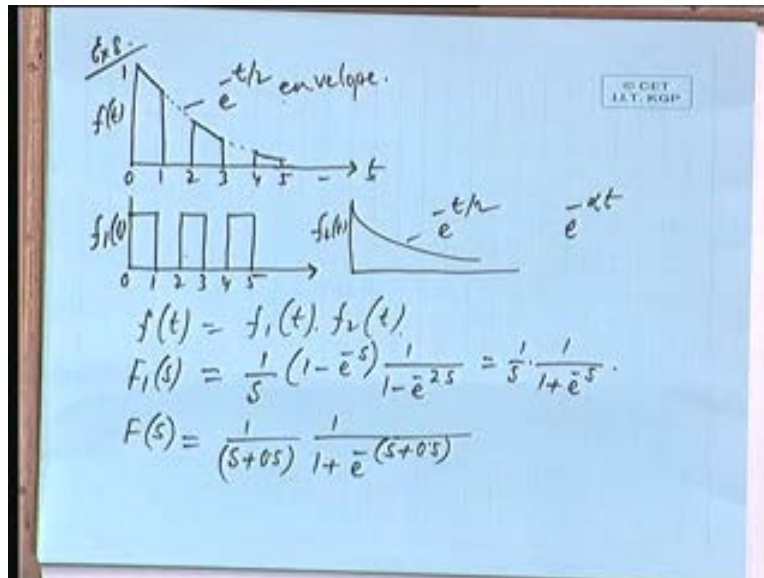 Ex 8.
1
f(t)
e^{-t/2} envelope.
© CET
I.I.T. KGP
0 1 2 3 4 5 - t
f₁(t)
0 1 2 3 4 5
f₂(t)
e^{-t/2}
e^{-αt}
f(t) = f₁(t). f₂(t)
F₁(s) = 1/s (1 - e^{-s}) 1/(1 - e^{-2s}) = 1/s · 1/(1 + e^{-s}).
F(s) = 1/(s+0.5) 1/(1 + e^{-(s+0.5)})